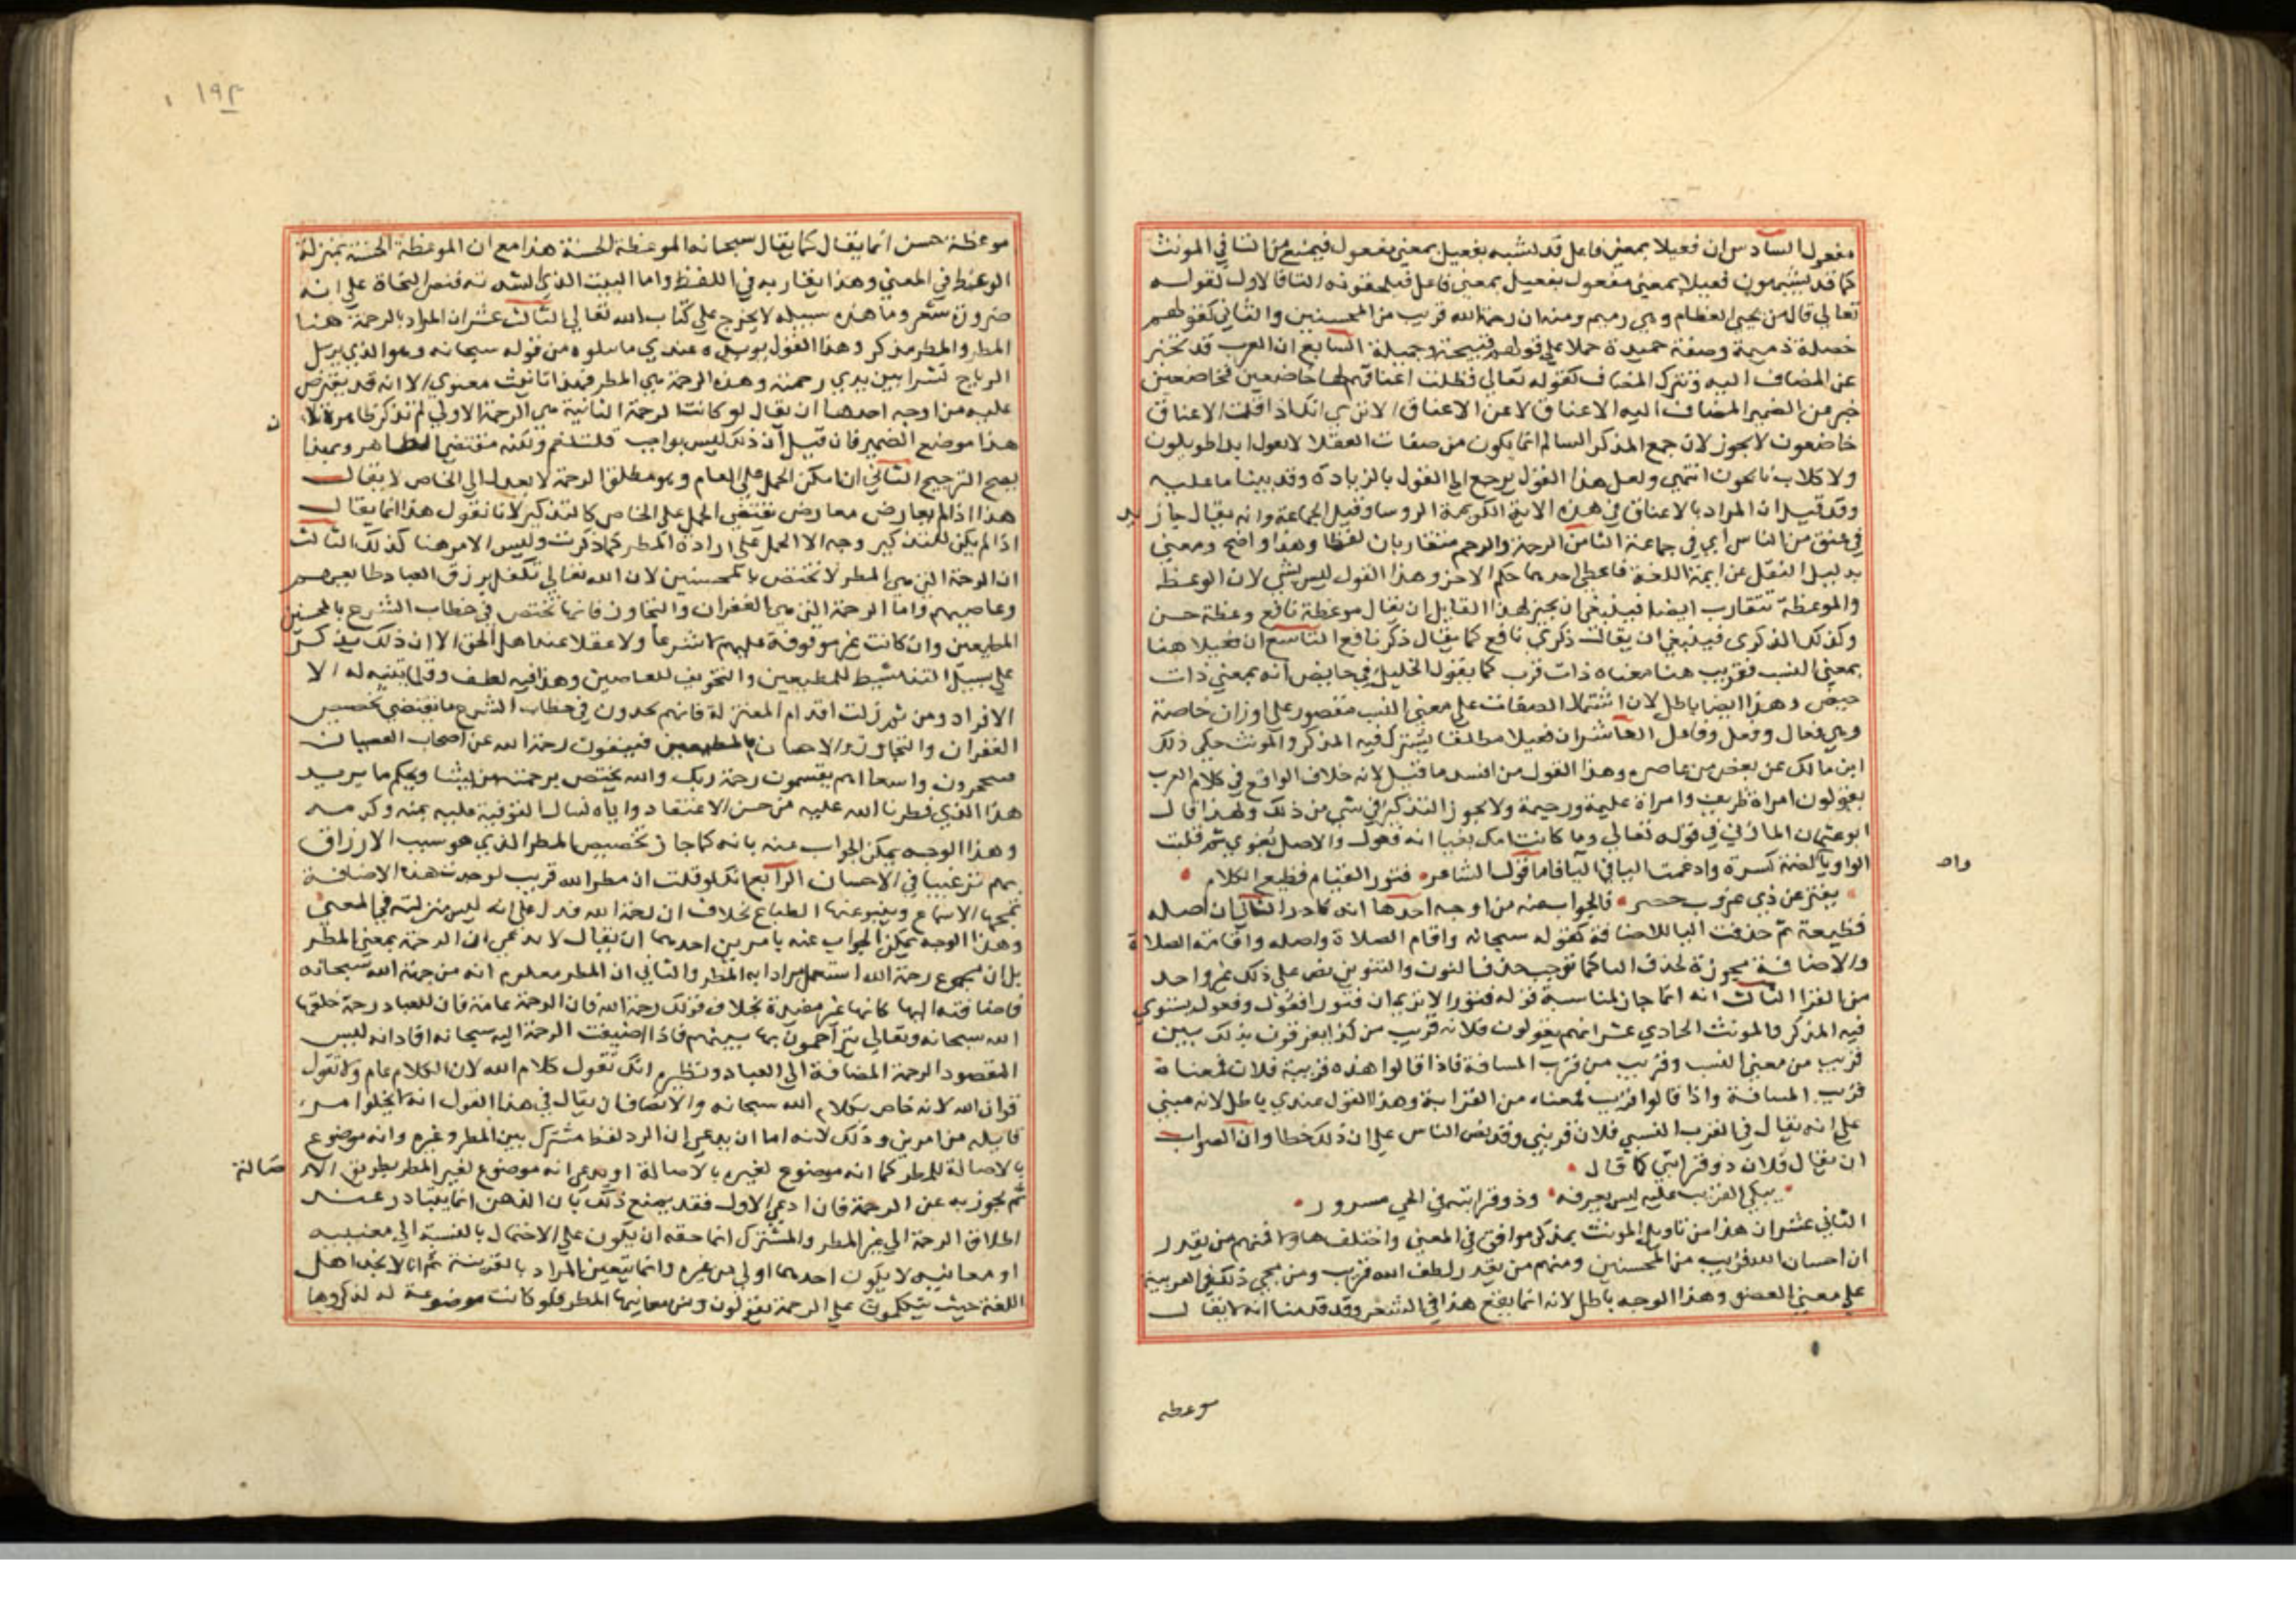 مفعول السادس ان فعيلا بمعني فاعل قد يشبه بفعيل بمعني مفعول فيمنع من التا في المونث
كما قد يشبهون فعيلا بمعني مفعول بفعيل بمعني فاعل فيلحقونه التا فالاول كقوله
تعالي قال من يحيي العظام وهي رميم ومنه ان رحمة الله قريب من المحسنين والثاني كقولهم
خصلة ذميمة وصفة حميدة حملا علي قولهم قبيحة وجميلة السابع ان العرب قد تخبر
عن المضاف اليه وتترك المضاف كقوله تعالي فظلت اعناقهم لها خاضعين فخاضعين
خبر من الضمير المضاف اليه الاعناق لا عن الاعناق الا تري انك اذا قلت الاعناق
خاضعون لا يجوز لان جمع المذكر السالم انما يكون من صفات العقلا لا يقول ايد طويلون
ولا كلاب نابحون انتهي ولعل هذا القول يرجع الي القول بالزيادة وقد بينا ما عليه
وقد قيل ان المراد بالاعناق في هذه الاية الكريمة الروسا وقيل الجماعة وانه يقال جاز يد
في عنق من الناس اي في جماعة الثامن الرحمة والرحم متقاربان لفظا وهذا واضح ومعني
بدليل النقل عن ايمة اللغة فاعطي احدهما حكم الاخر وهذا القول ليس بشي لان الوعظ
والموعظة تتقارب ايضا فينبغي ان يجيز لهذا القايل ان يقال موعظة نافع وعظة حسن
وكذلك الذكري فينبغي ان يقالت ذكري نافع كما يقال ذكر نافع التاسع ان فعيلا هنا
بمعني النسب فقريب هنا معناه ذات قرب كما يقول الخليل في حايض انه بمعني ذات
حيض وهذا ايضا باطل لان اشتمال الصفات علي معني النسب مقصور علي اوزان خاصة
وهي فعال وفعل وفاعل العاشر ان فعيلا مطلقا يشترك فيه المذكر والمونث حكي ذلك
ابن مالك عن بعض من عاصره وهذا القول من افسد ما قيل لانه خلاف الواقع في كلام العرب
يقولون امراة ظريفة وامراة عليمة ورحيمة ولا يجوز التذكير في شي من ذلك ولهذا قال
ابو عثمان المازني في قوله تعالي وما كانت امك بغيا انه فعول والاصل بغوي ثم قلبت
الواو يا والضمة كسرة وادغمت اليا في اليا فاما قول الشاعر فتور القيام قطيع الكلام
يفتر عن ذي غروب خصر فالجواب عنه من اوجه احدها انه نادر الثاني ان اصله
قطيعة ثم حذفت اليا للاضافة كقوله سبحانه واقام الصلاة واصله واقامة الصلاة
والاضافة مجوزة لحذف التا كما توجب حذف النون والتنوين نص علي ذلك غير واحد
من الفرا الثالث انه انما جاز لمناسبة قوله فتور الا تري ان فتور افعول وفعول يستوي
فيه المذكر والمونث الحادي عشر انهم يقولون فلانة قريب من كذا يفرقون بذلك بين
قريب من معني النسب وقريب من قرب المسافة فاذا قالوا هذه قريبة فلان فمعناه
قرب المسافة واذا قالوا قريب فمعناه من القرابة وهذا القول عندي باطل لانه مبني
علي انه يقال في القرب النسبي فلان قريبي وقد نص الناس علي ان ذلك خطا وان الصواب
ان يقال فلان ذو قرابتي كما قال
يبكي الغريب عليه ليس يعرفه وذو قرابته في الحي مسرور
الثاني عشر ان هذا من تاويل المونث بمذكر موافق في المعني واختلف هاولا فمنهم من يقدر
ان احسان الله قريب من المحسنين ومنهم من يقدر لطف الله قريب ومن مجي ذلك في العربية
علي معني العضو وهذا الوجه باطل لانه انما يقع هذا في الشعر وقد قدمنا انه لا يقال
واد
موعظه
١٩٣
موعظة حسن انما يقال كما يقال سبحانه الموعظة الحسنة هذا مع ان الموعظة الحسنة بمنزلة
الوعظ في المعني وهذا يقاربه في اللفظ واما البيت الذي انشدته فنص النحاة علي انه
ضرورة شعر وما هذه سبيله لا يخرج علي كتاب الله تعالي الثالث عشر ان المراد بالرحمة هنا
المطر والمطر مذكر وهذا القول يويده عندي ما يتلوه من قوله سبحانه وهو الذي يرسل
الرياح نشرا بين يدي رحمته وهذه الرحمة هي المطر فهذا تانيث معنوي الا انه قد يعترض
عليه من اوجه احدها ان يقال لو كانت الرحمة الثانية هي الرحمة الاولي لم تذكر ظاهرة لان
هذا موضع الضمير فان قيل ان ذلك ليس بواجب قلت نعم ولكنه مقتضي الظاهر وبهذا
يصح الترجيح الثاني ان امكن الحمل علي العام وهو مطلق الرحمة لا يعدل الي الخاص لا يقال
هذا اذا لم يعارض معارض يقتضي الحمل علي الخاص كالتذكير لانا نقول هذا انما يقال
اذا لم يكن للتذكير وجه الا الحمل علي ارادة المطر كما ذكرت وليس الامر هنا كذلك الثالث
ان الرحمة التي هي المطر لا تختص بالمحسنين لان الله تعالي تكفل برزق العباد طايعهم
وعاصيهم واما الرحمة التي هي الغفران والتجاوز فانها تختص في خطاب الشرع بالمحسنين
المطيعين وان كانت غير موقوفة عليهم لا شرعا ولا عقلا عند اهل الحق الا ان ذلك يذكر
علي سبيل التنشيط للمطيعين والتخويف للعاصين وهذا فيه لطف وقلما يتنبه له الا
الافراد ومن ثم زلت اقدام المعتزلة فانهم يجدون في خطاب الشرع ما يقتضي تخصيص
الغفران والتجاوز والاحسان بالمطيعين فينفون رحمة الله عن اصحاب العصيان
فيحجرون واسعا اهم يقسمون رحمة ربك والله يختص برحمته من يشا ويحكم ما يريد
هذا الذي فطرنا الله عليه من حسن الاعتقاد واياه نسال التوفيق عليه بمنه وكرمه
وهذا الوجه يمكن الجواب عنه بانه كما جاز تخصيص المطر الذي هو سبب الارزاق
بهم ترغيبا في الاحسان الرابع انك لو قلت ان مطر الله قريب لوجدت هذه الاضافة
تمجها الاسماع وتنبو عنها الطباع بخلاف ان رحمة الله فدل علي انه ليس منزلته في المعني
وهذا الوجه يمكن الجواب عنه بامرين احدهما ان يقال لا ندعي ان الرحمة بمعني المطر
بل ان مجموع رحمة الله استعمل مرادا به المطر والثاني ان المطر معلوم انه من جهة الله سبحانه
فاضافته اليها كانها غير مفيدة بخلاف قولك رحمة الله فان الرحمة عامة فان للعباد رحمة خلقها
الله سبحانه وتعالي يتراحمون بها بينهم فاذا اضيفت الرحمة اليه سبحانه افاد انه ليس
المقصود الرحمة المضافة الي العباد ونظيره انك تقول كلام الله لان الكلام عام ولا تقول
قران الله لانه خاص بكلام الله سبحانه والانصاف ان يقال في هذا القول انه لا يخلوا من
قايله من امرين وذلك لانه اما ان يدعي ان الرد لفظ مشترك بين المطر وغيره وانه موضوع
بالاصالة للمطر كما انه موضوع لغيره بالاصالة او يدعي انه موضوع لغير المطر بطريق الاصالة
ثم تجوز به عن الرحمة فان ادعي الاول فقد يمنع ذلك بان الذهن انما يتبادر عند
اطلاق الرحمة الي غير المطر والمشترك انما حقه ان يكون علي الاحتمال بالنسبة الي معنييه
او معانيه لا يكون احدهما اولي من غيره وانما يتعين المراد بالقرينة ثم انا لا نجد اهل
اللغة حيث يتكلمون علي الرحمة يقولون ومن معانيها المطر فلو كانت موضوعة له لذكروها